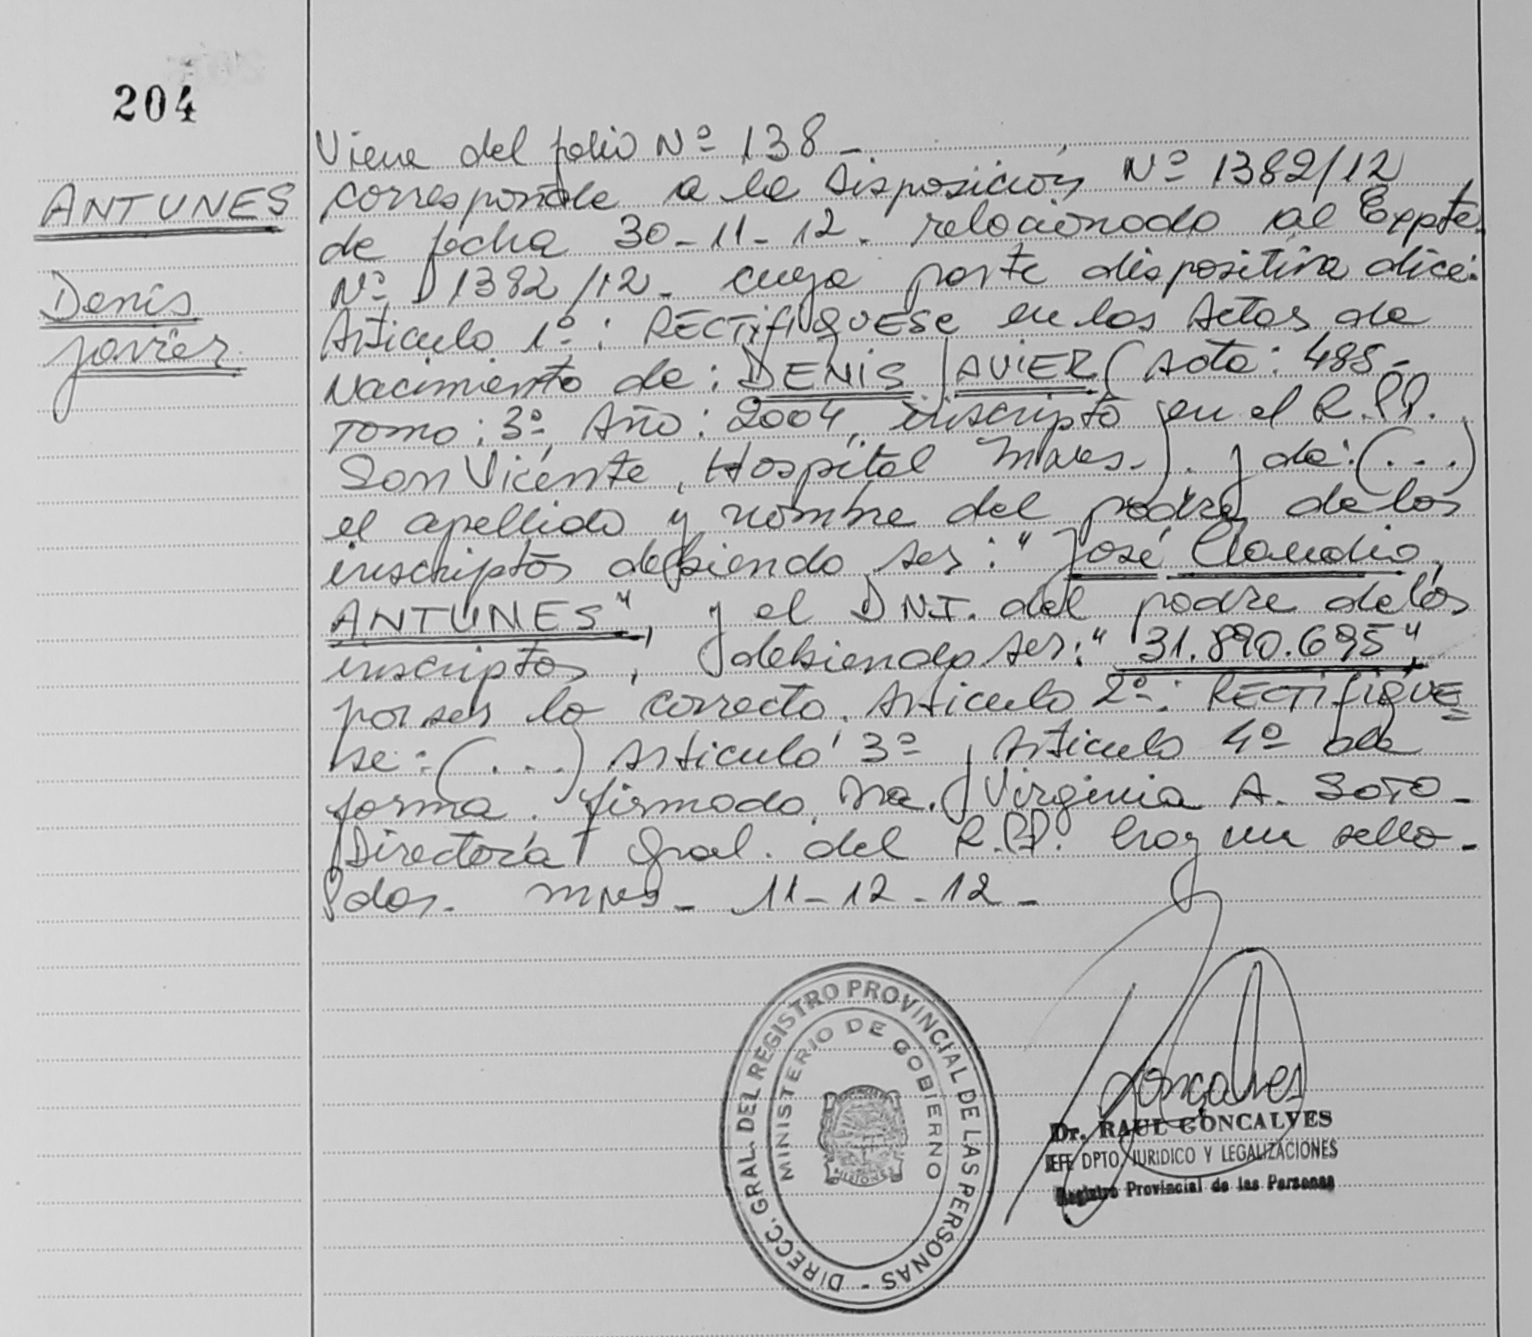 204
ANTUNES
Denis
Javier
Viene del folio Nº 138 -
corresponde a la Disposición Nº 1382/12
de fecha 30-11-12. relacionado al Expte.
Nº D 1382/12- cuya parte dispositiva dice:
Articulo 1º: RECTIFIQUESE en los Actos de
Nacimiento de: DENIS JAVIER (Acta: 485-
Tomo: 3º, Año: 2004, inscripto en el R.PP.
San Vicente, Hospital Mnes.). y de: (...)
el apellido y nombre del padre de los
inscriptos debiendo ser: "José Claudio
ANTUNES", y el DNI. del padre de los
inscriptos, debiendo ser: "31.890.695",
por ser lo correcto. Articulo 2º: RECTIFIQUE=
se: (...) Articulo 3º y Articulo 4º de
forma. firmado Dra. Virginia A. SOTO-
Directora Gral. del R.PP. hay un sello-
Pdas. Mnes- 11-12-12-
DIRECC. GRAL. DEL REGISTRO PROVINCIAL DE LAS PERSONAS -
MINISTERIO DE GOBIERNO
MISIONES
Goncalves
Dr. RAUL GONCALVES
JEFE DPTO. JURIDICO Y LEGALIZACIONES
Registro Provincial de las Personas